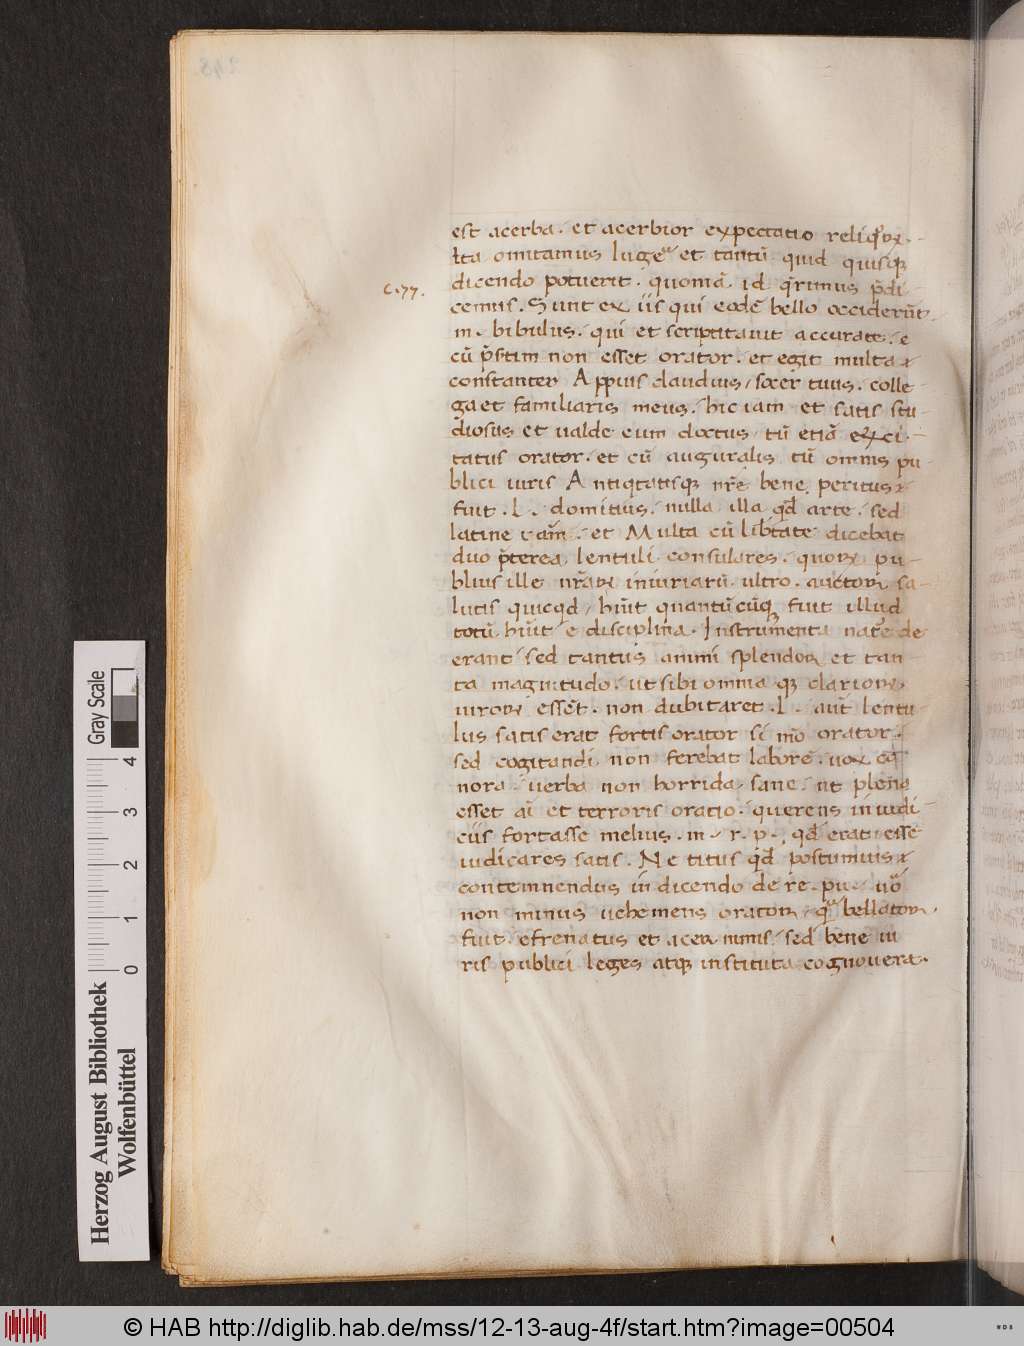 est acerba. et acerbior expectatio reliq̃ꝝ.
Ita omitamus lugẽ et tantũ quid quisqȝ
C.77.
dicendo potuerit. quomã. id q̃rimus p̃di
cemus. Sunt ex iis qui eodẽ bello occiderũt
m. bibulus. qui et scriptitauit accurate. e
cũ p̃stim non esset orator. et egit multa
constanter Appius claudius, socer tuus. colle
ga et familiaris meus. hic iam et satis stu
diosus et ualde cum doctus tũ etiã exci
tatus orator. et cũ auguralis tũ omnis pu
blici iuris Antiqtatisqȝ nr̃e bene peritus
fuit. L. domitius. nulla illa qd̃ arte. sed
latine et Multa cũ lib̃tate dicebat
duo p̃terea lentuli consulares. quoꝝ pu
blius ille nr̃aꝝ iniuriarũ ultro. auctoꝝ sa
lutis quicqd, hũit quantũcũqȝ fuit illud
totũ hũit e disciplina. Instrumenta natr̃e de
erant sed tantus animi splendoꝝ et tan
ta magnitudo. ut sibi omnia qȝ clarioꝝ
uiroꝝ essẽt. non dubitaret. L. aũt lentu
lus satis erat fortis orator si mõ orator.
sed cogitandi non ferebat laborẽ. uox cã
nora. uerba non horrida sane. ut plena
esset ai et terroris oratio. querens in iudi
ciis fortasse melius. in. r. p. qd̃ erat esse
iudicares satis. Ne titus qd̃ postumius
contemnendus in dicendo de rẽ. pu. uõ
non minus uehemens oratoꝝ, q̃ bellatoꝝ.
fuit. efrenatus et acer nimis. sed bene iu
ris publici leges atqȝ instituta cognouera.
248
Herzog August Bibliothek
Wolfenbüttel
0 1 2 3 4
Gray Scale
© HAB http://diglib.hab.de/mss/12-13-aug-4f/start.htm?image=00504